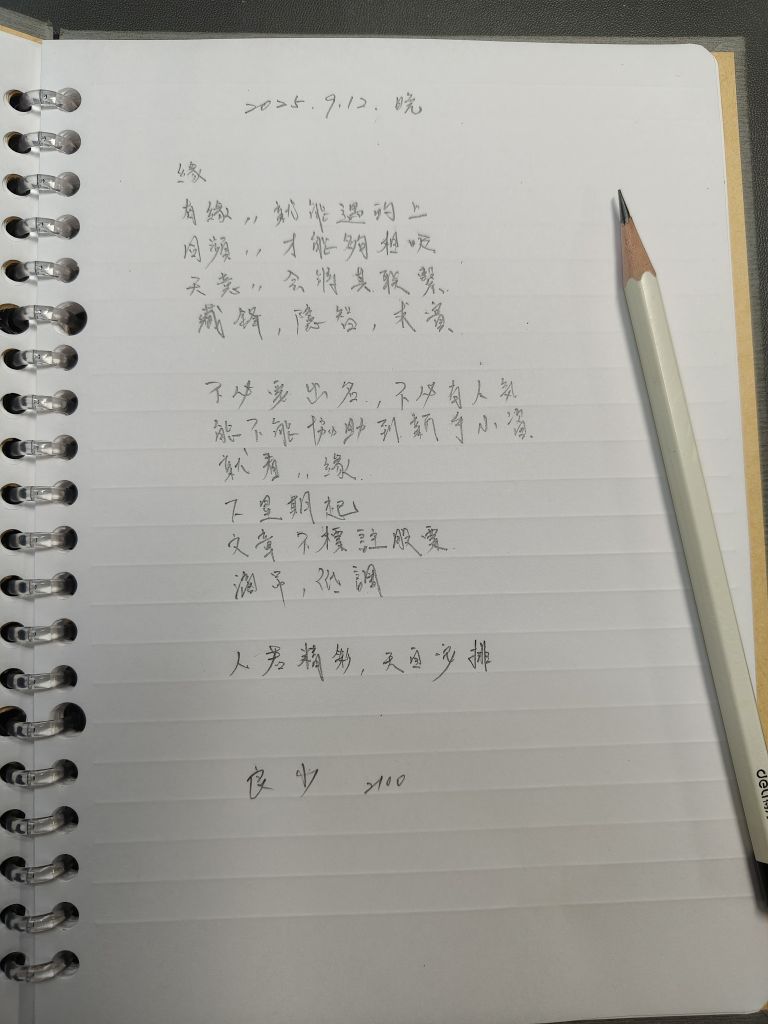 2025.9.12. 晚
緣
有緣,, 就能遇的上
同頻,, 才能夠相吸
天意,, 会將其联繫.
藏鋒, 隐智, 求實.
不必要出名., 不必有人氣
能不能协助到新手小資.
就看,, 緣.
下星期起
文章不標註股票.
滴早, 低調
人若精彩, 天自安排
良少 2100
deli